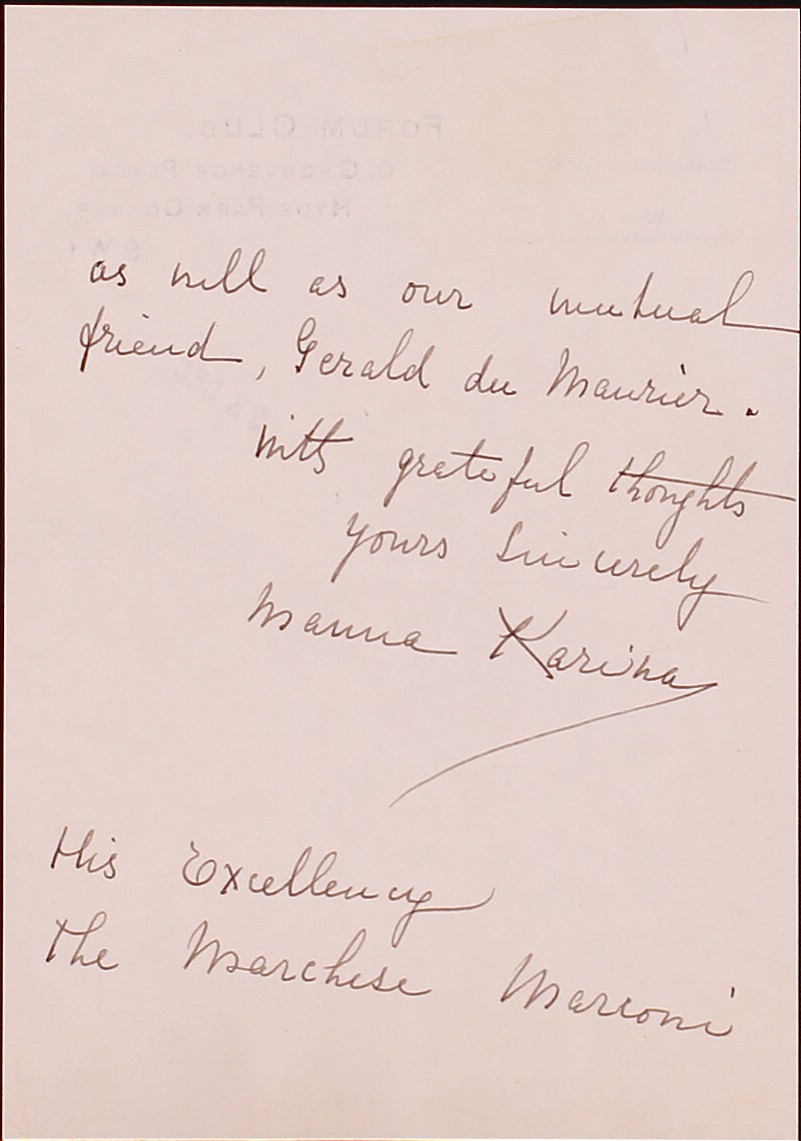 FORUM CLUB.
6, GROSVENOR PLACE,
HYDE PARK CORNER
as well as our mutual
friend, Gerald du Maurier.
With grateful thoughts
yours sincerely
Manna Karina
His Excellency
The Marchese Marconi